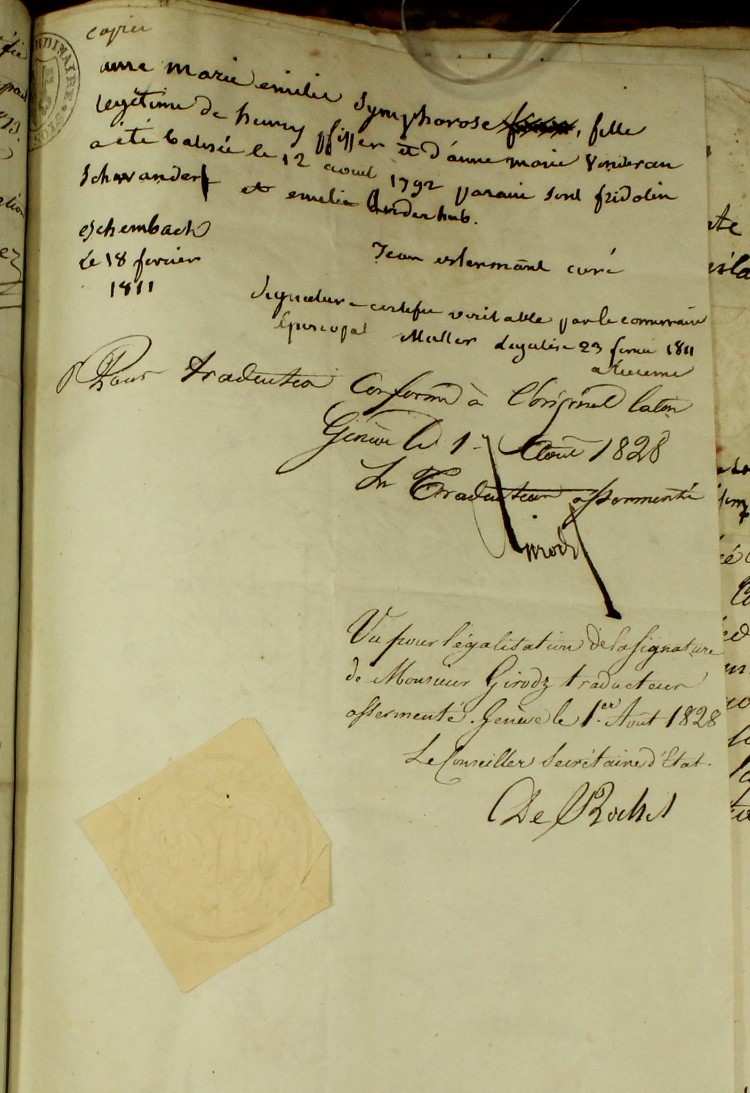 copie
anne marie emilie Symphorose, fille
legitime de henry pfiffer et d'anne marie Vonderan
a été batisée le 12 aoust 1792 parain sont fridolin
Schwander et emelie Anderhub.
eschembach
Le 18 fevrier
1811
Jean estermant curé
Signature certifie veritable par le commissaire
Episcopal Muller Legalisé 23 fevrier 1811
a Lucerne
Pour traduction conforme à l'original latin
Genève le 1er Août 1828
Le Traducteur assermenté
Girodz
Vu pour légalisation de la signature
de Monsieur Girodz traducteur
assermenté. Genève le 1er Août 1828
Le Conseiller Secrétaire d'Etat.
De Rochet